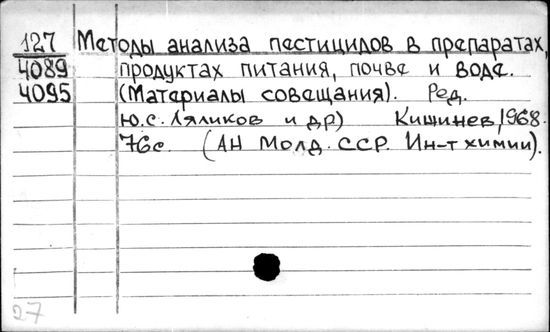 127 Методы анализа пестицидов в препаратах,
4089 продуктах питания, почве и воде.
4095 (Материалы совещания). Ред.
Ю.С. Ляликов и др) Кишинев, 1968.
76с. (АН Молд. ССР. Ин-т химии).
27